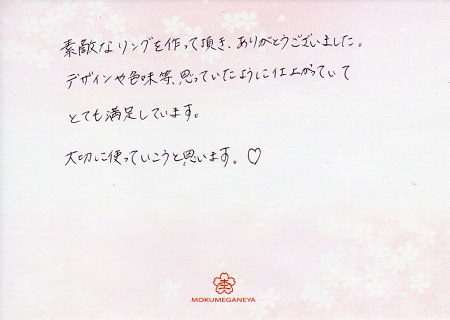 素敵なリングを作って頂き、ありがとうございました。
デザインや色味等、思っていたように仕上がっていて
とても満足しています。
大切に使っていこうと思います。♡
MOKUMEGANEYA